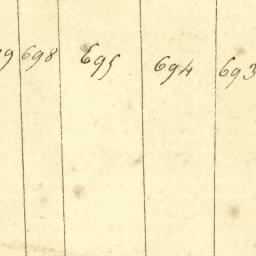 9 698 695 694 693